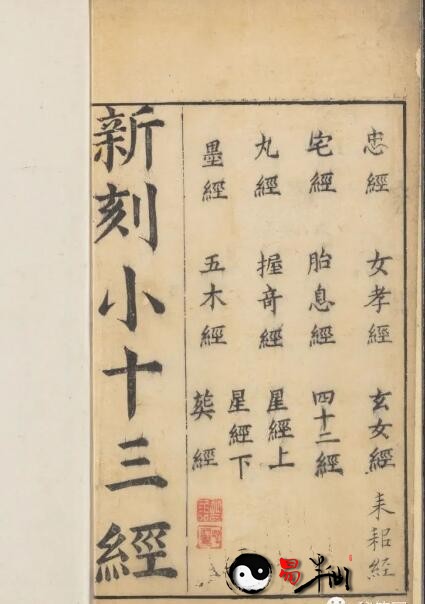 忠經 女孝經 玄女經 耒耜經
宅經 胎息經 四十二經
丸經 握竒經 星經上
星經下
墨經 五木經 葬經
新刻小十三經
易半仙